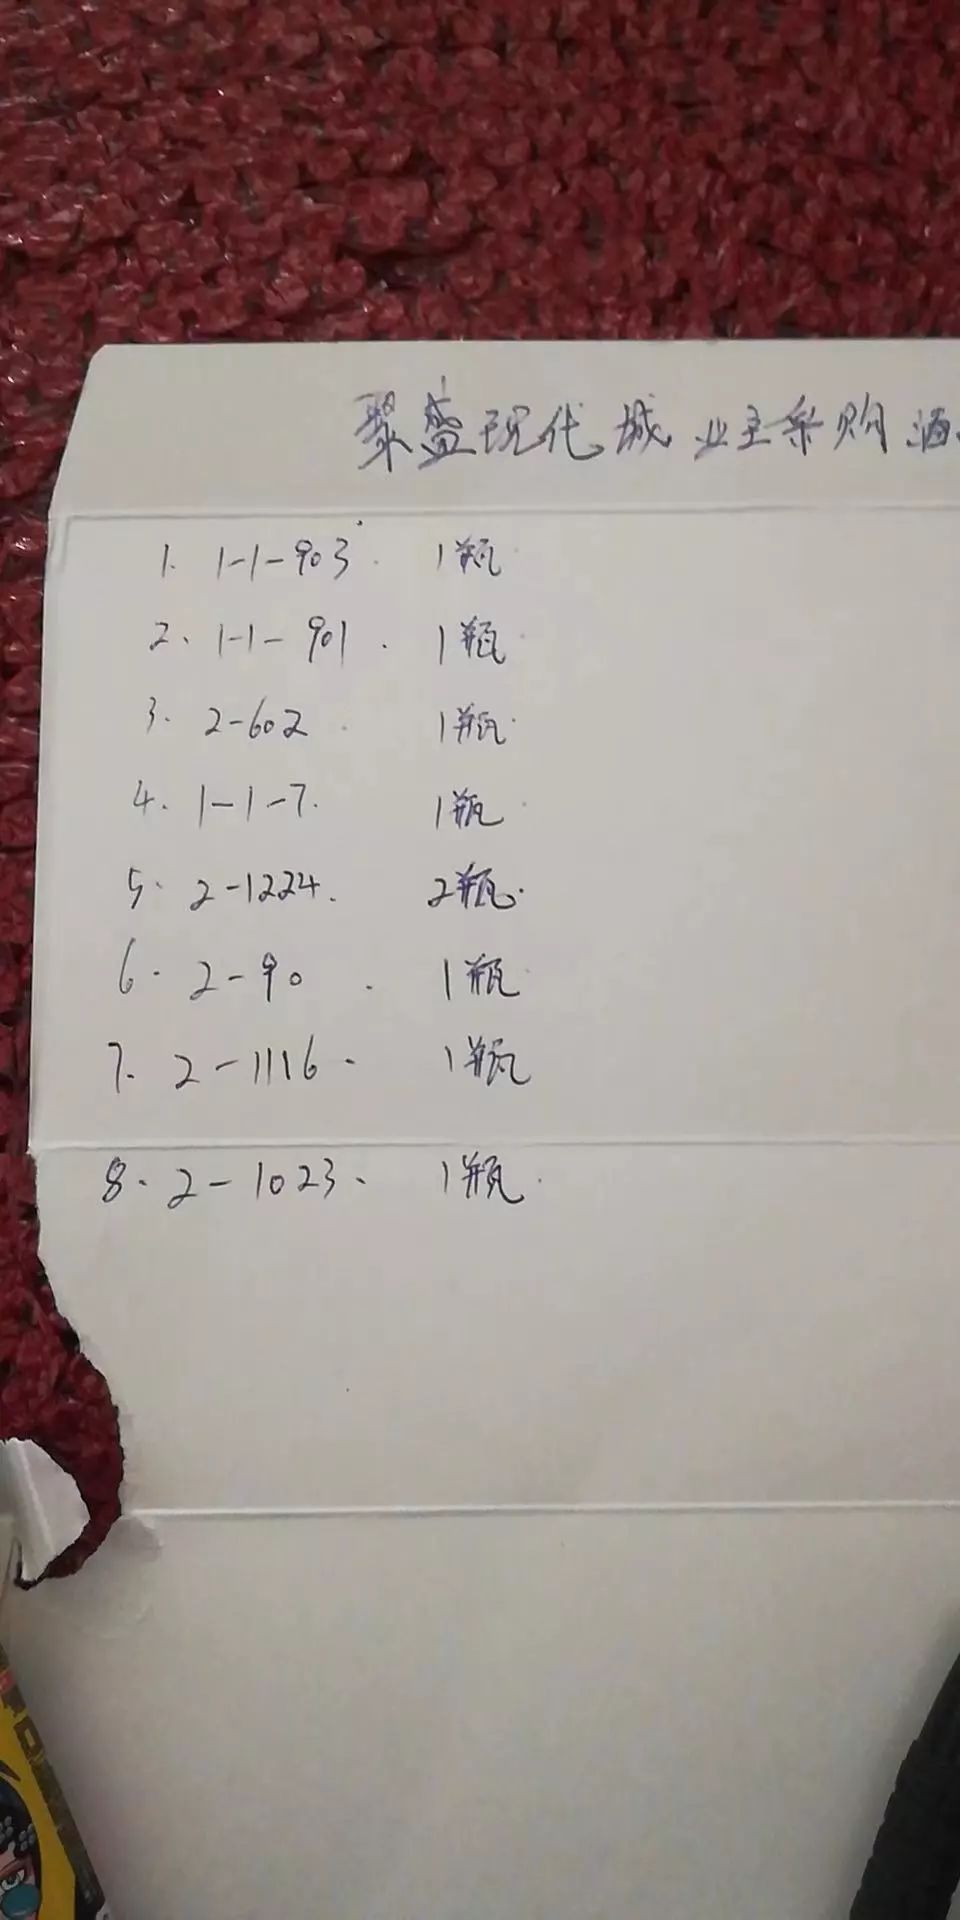 聚盛现代城业主采购酒
1. 1-1-903. 1瓶
2. 1-1-901. 1瓶
3. 2-602. 1瓶
4. 1-1-7. 1瓶
5. 2-1224. 2瓶.
6. 2-90. 1瓶
7. 2-1116. 1瓶
8. 2-1023. 1瓶.